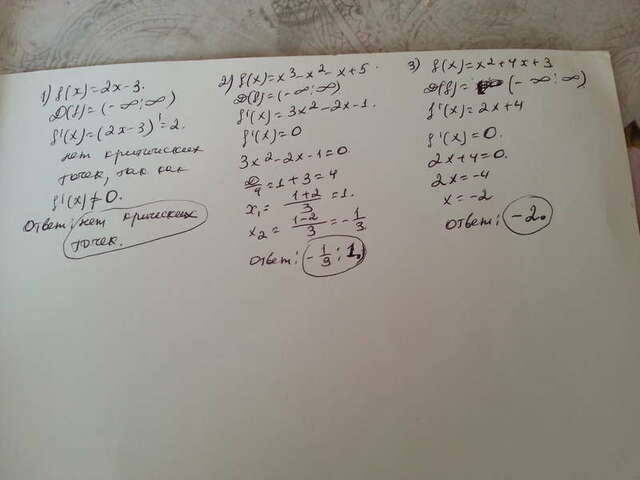 1) f(x)=2x-3.
D(f)=(-∞;∞)
f'(x)=(2x-3)'=2.
нет критических
точек, так как
f'(x)≠0.
Ответ: нет критических
точек.
2) f(x)=x³-x²-x+5.
D(f)=(-∞;∞)
f'(x)=3x²-2x-1.
f'(x)=0
3x²-2x-1=0.
D/4=1+3=4
x₁=(1+2)/3=1.
x₂=(1-2)/3=-1/3.
Ответ: -1/3; 1.
3) f(x)=x²+4x+3
D(f)=(-∞;∞)
f'(x)=2x+4
f'(x)=0.
2x+4=0.
2x=-4
x=-2
Ответ: -2.